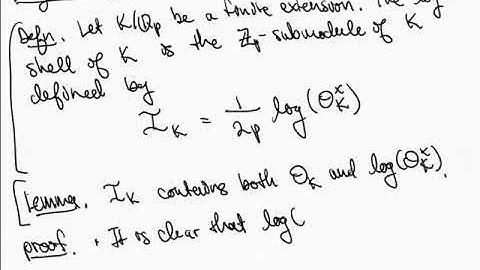 Defn. Let K/ℚp be a finite extension. The log
shell of K is the ℤp-submodule of K
defined by
𝓘_K = 1/2p log(𝒪_K^×)
Lemma. 𝓘_K contains both 𝒪_K and log(𝒪_K^×).
proof. • It is clear that log(